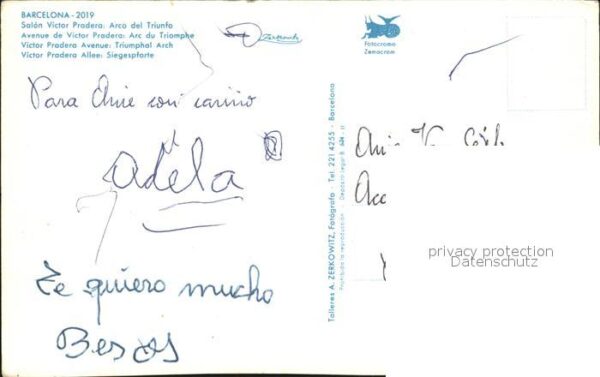 BARCELONA - 2019
Salón Víctor Pradera: Arco del Triunfo
Avenue de Víctor Pradera: Arc du Triomphe
Víctor Pradera Avenue: Triumphal Arch
Víctor Pradera Allee: Siegespforte
Zerkowitz
Fotocromo
Zemacrom
Para Anie con cariño
adela
Te quiero mucho
Besos
Talleres A. ZERKOWITZ, Fotógrafo - Tel. 221 4255 - Barcelona
Prohibida la reproducción - Depósito legal B.
privacy protection
Datenschutz